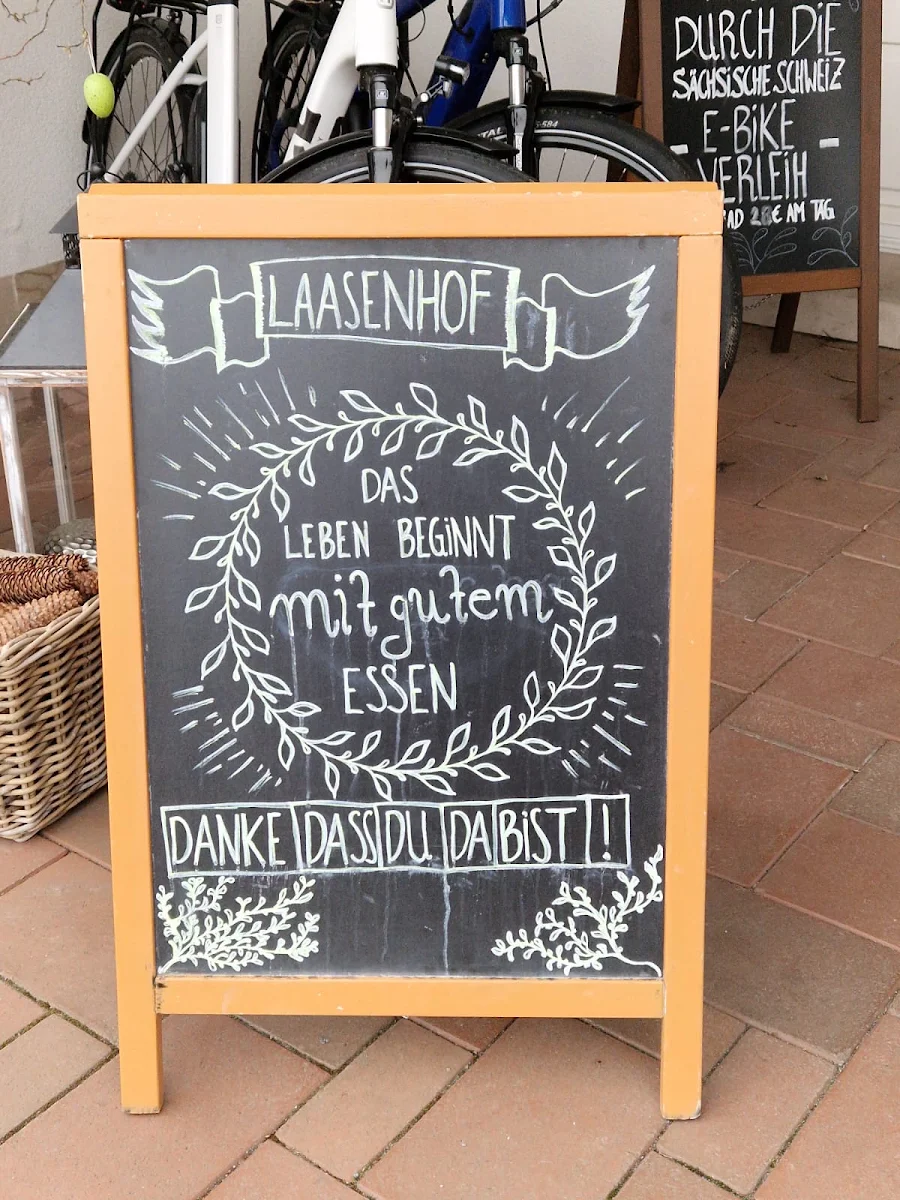 DURCH DIE
SÄCHSISCHE SCHWEIZ
E-BIKE
VERLEIH
AM TAG
LAASENHOF
DAS
LEBEN BEGINNT
mit gutem
ESSEN
DANKE DASS DU DA BIST !